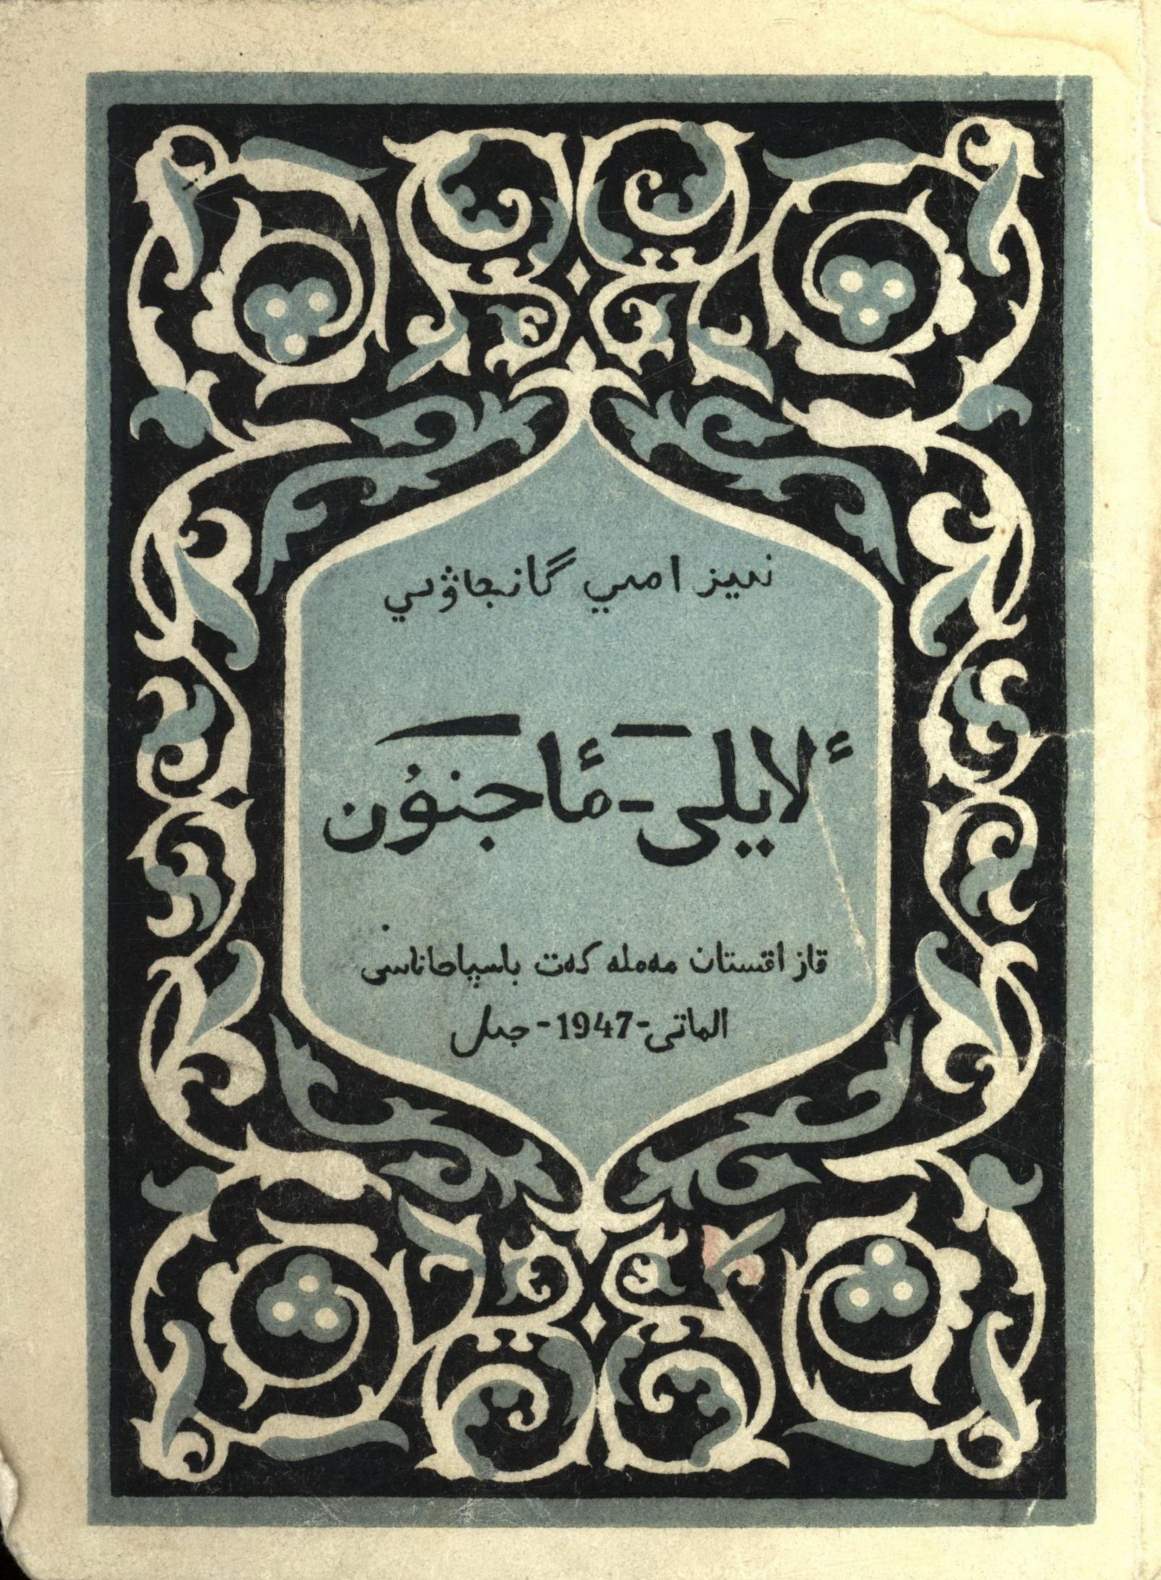 نىيز امىي گانجاۋىي
ٴلايلى-ٴماجنۇن
قاز اقستان مەملە كەت باسپاحاناسى
الماتى-1947-جىل